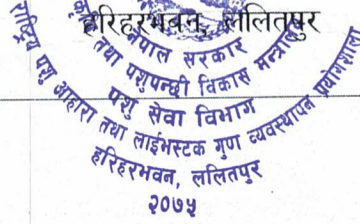 हरिहरभवन, ललितपुर
नेपाल सरकार
तथा पशुपन्छी विकास मन्त्रालय
पशु सेवा विभाग
राष्ट्रिय पशु आहारा तथा लाईभस्टक गुण व्यवस्थापन प्रयोगशाला
हरिहरभवन, ललितपुर
२०७५